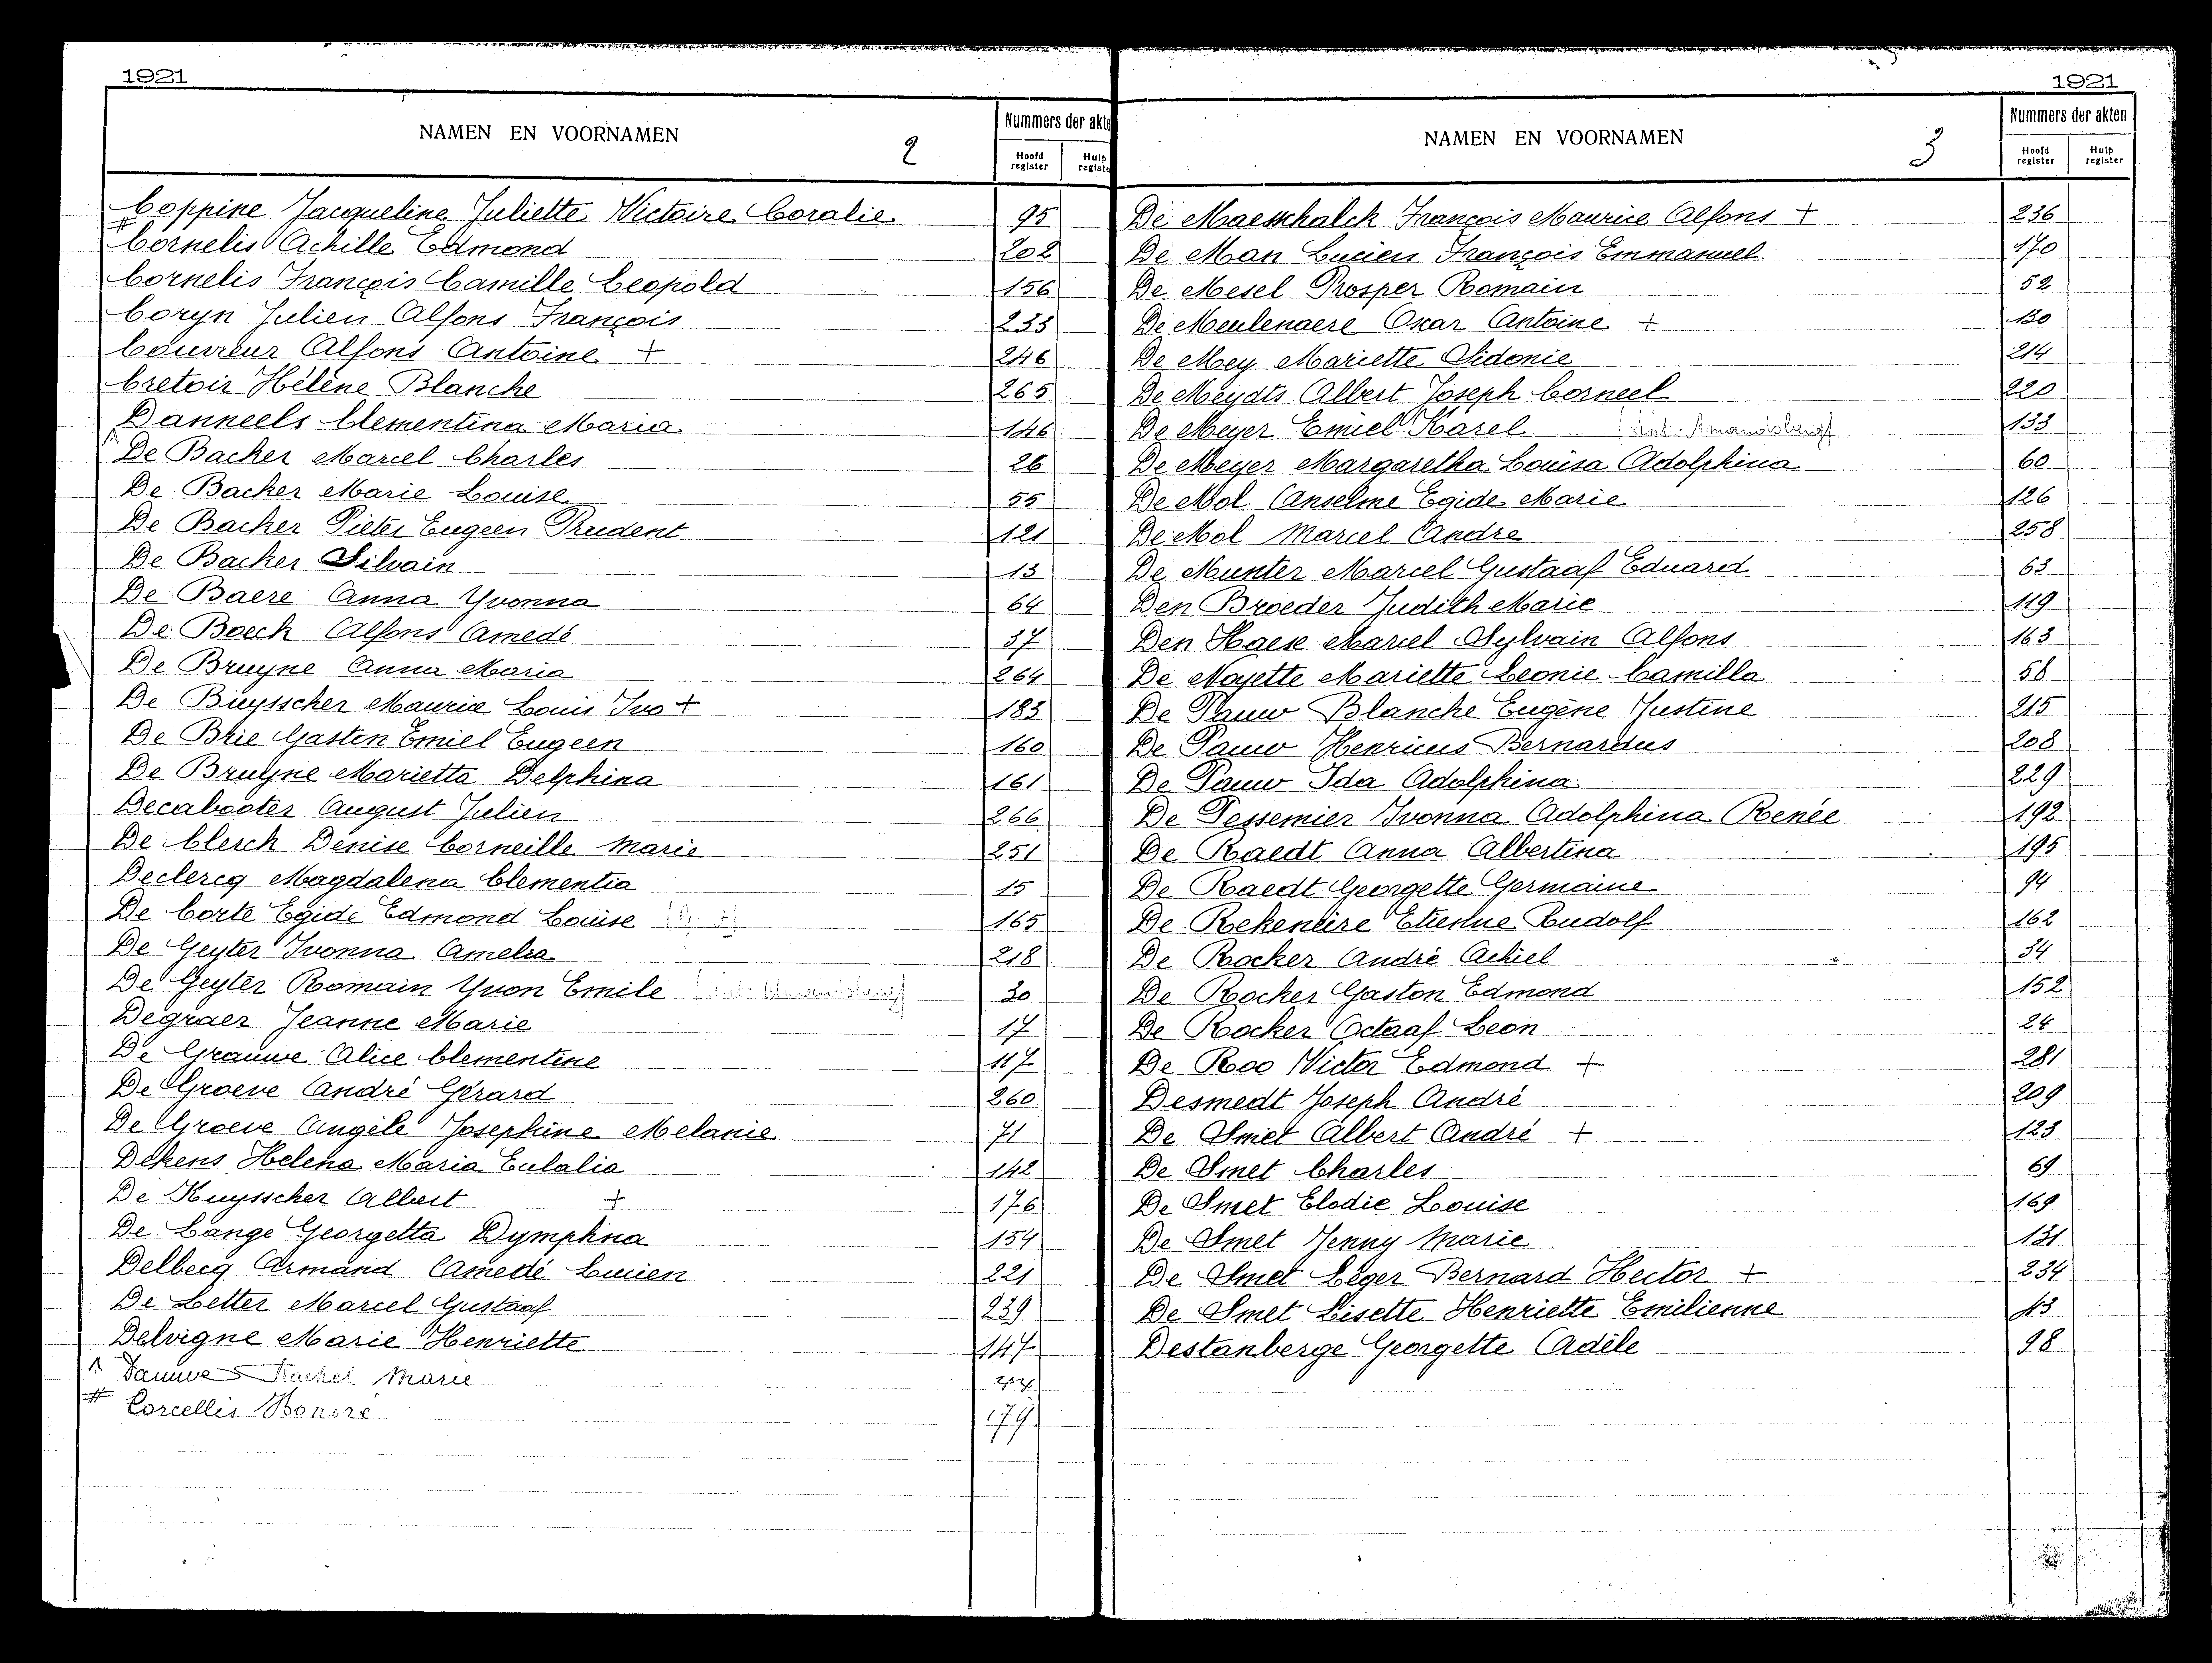 1921
NAMEN EN VOORNAMEN
2
Nummers der akte
Hoofd register
Hulp registe
Coppine Jacqueline Juliette Victoire Coralie 95
# Cornelis Achille Edmond 202
Cornelis François Camille Leopold 156
Coryn Julien Alfons François 233
Couvreur Alfons Antoine + 246
Cretoir Hélène Blanche 265
Danneels Clementina Maria 146
De Backer Marcel Charles 26
De Backer Marie Louise 55
De Backer Pieter Eugeen Prudent 121
De Backer Silvain 13
De Baere Anna Yvonna 64
De Boeck Alfons Amedé 37
De Bruyne Anna Maria 264
De Buysscher Maurice Louis Ivo + 183
De Brie Gasten Emiel Eugeen 160
De Bruyne Marietta Delphina 161
Decabooter August Julien 266
De Clerck Denise Corneille Marie 251
Declercq Magdalena Clementia 15
De Corte Egide Edmond Louise 165
De Geyter Ivonna Amelia 218
De Geyter Romain Yvon Emile 30
Degraer Jeanne Marie 17
De Grauwe Alice Clementine 117
De Groeve André Gérard 260
De Groeve Angèle Josephine Melanie 71
Dekens Helena Maria Eulalia 142
De Kuysscher Albert + 176
De Lange Georgetta Dymphna 154
Delbecq Armand Amedé Lucien 221
De Letter Marcel Gustaaf 239
Delvigne Marie Henriette 147
Dauwe Rachel Marie
# Corcellis Honoré 179
1921
NAMEN EN VOORNAMEN
3
Nummers der akten
Hoofd register
Hulp register
De Maesschalck François Maurice Alfons + 236
De Man Lucien François Emmanuel 170
De Mesel Prosper Romain 52
De Meulenaere Oscar Antoine + 130
De Mey Mariette Sidonie 214
De Meydts Albert Joseph Corneel 220
De Meyer Emiel Karel 133
De Meyer Margaretha Louisa Adolphina 60
De Mol Anselme Egide Marie 126
De Mol Marcel Andre 258
De Munter Marcel Gustaaf Eduard 63
Den Broeder Judith Marie 119
Den Haese Marcel Sylvain Alfons 163
De Nayette Mariette Leonie Camilla 58
De Pauw Blanche Eugène Justine 215
De Pauw Henricus Bernardus 208
De Pauw Ida Adolphina 229
De Pessemier Ivonna Adolphina Renée 192
De Raedt Anna Albertina 195
De Raedt Georgette Germaine 94
De Rekeneire Etienne Rudolf 162
De Rocker André Achiel 34
De Rocker Gaston Edmond 152
De Rocker Octaaf Leon 24
De Roo Victor Edmond + 281
Desmedt Joseph André 209
De Smet Albert André + 123
De Smet Charles 69
De Smet Elodie Louise 169
De Smet Jenny Marie 131
De Smet Léger Bernard Hector + 234
De Smet Lisette Henriette Emilienne 43
Destanberge Georgette Adèle 98